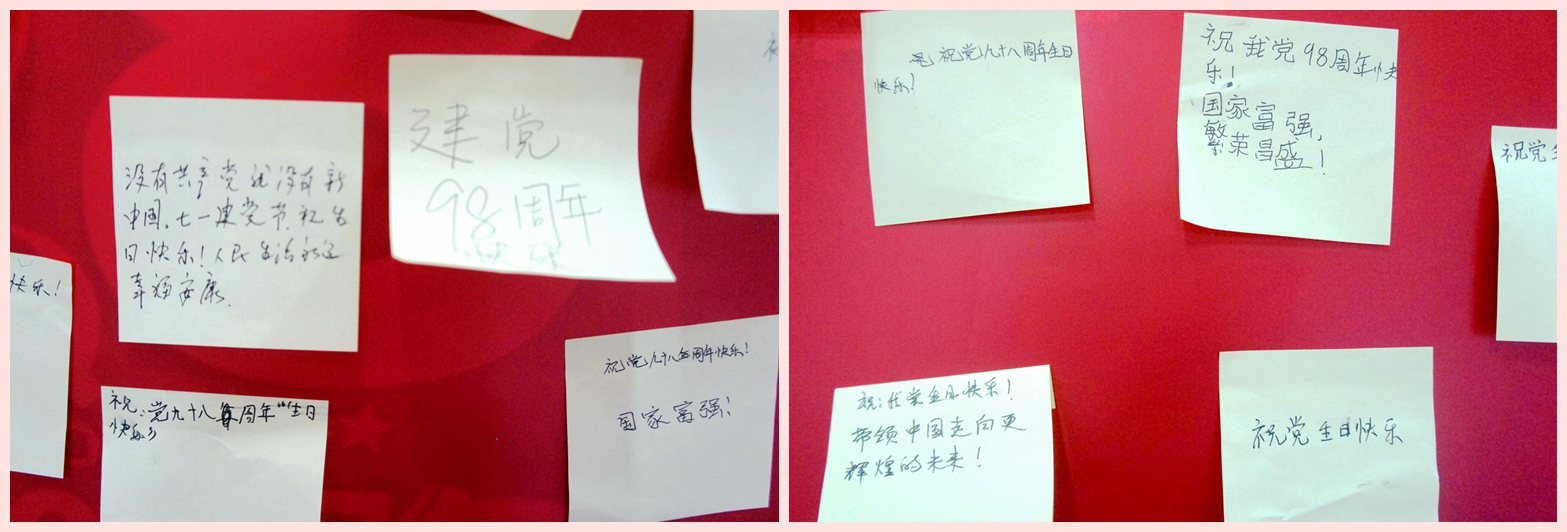 没有共产党就没有新
中国。七一建党节.祝生
日快乐!人民生活永远
幸福安康.
建党
98周年
快乐!
祝:党九十八周年“生日
快乐”
祝党九十八周年快乐!
国家富强!
祝党九十八周年生日
快乐!
祝我党98周年快
乐!
国家富强,
繁荣昌盛!
祝党
祝:我党生日快乐!
带领中国走向更
辉煌的未来!
祝党生日快乐